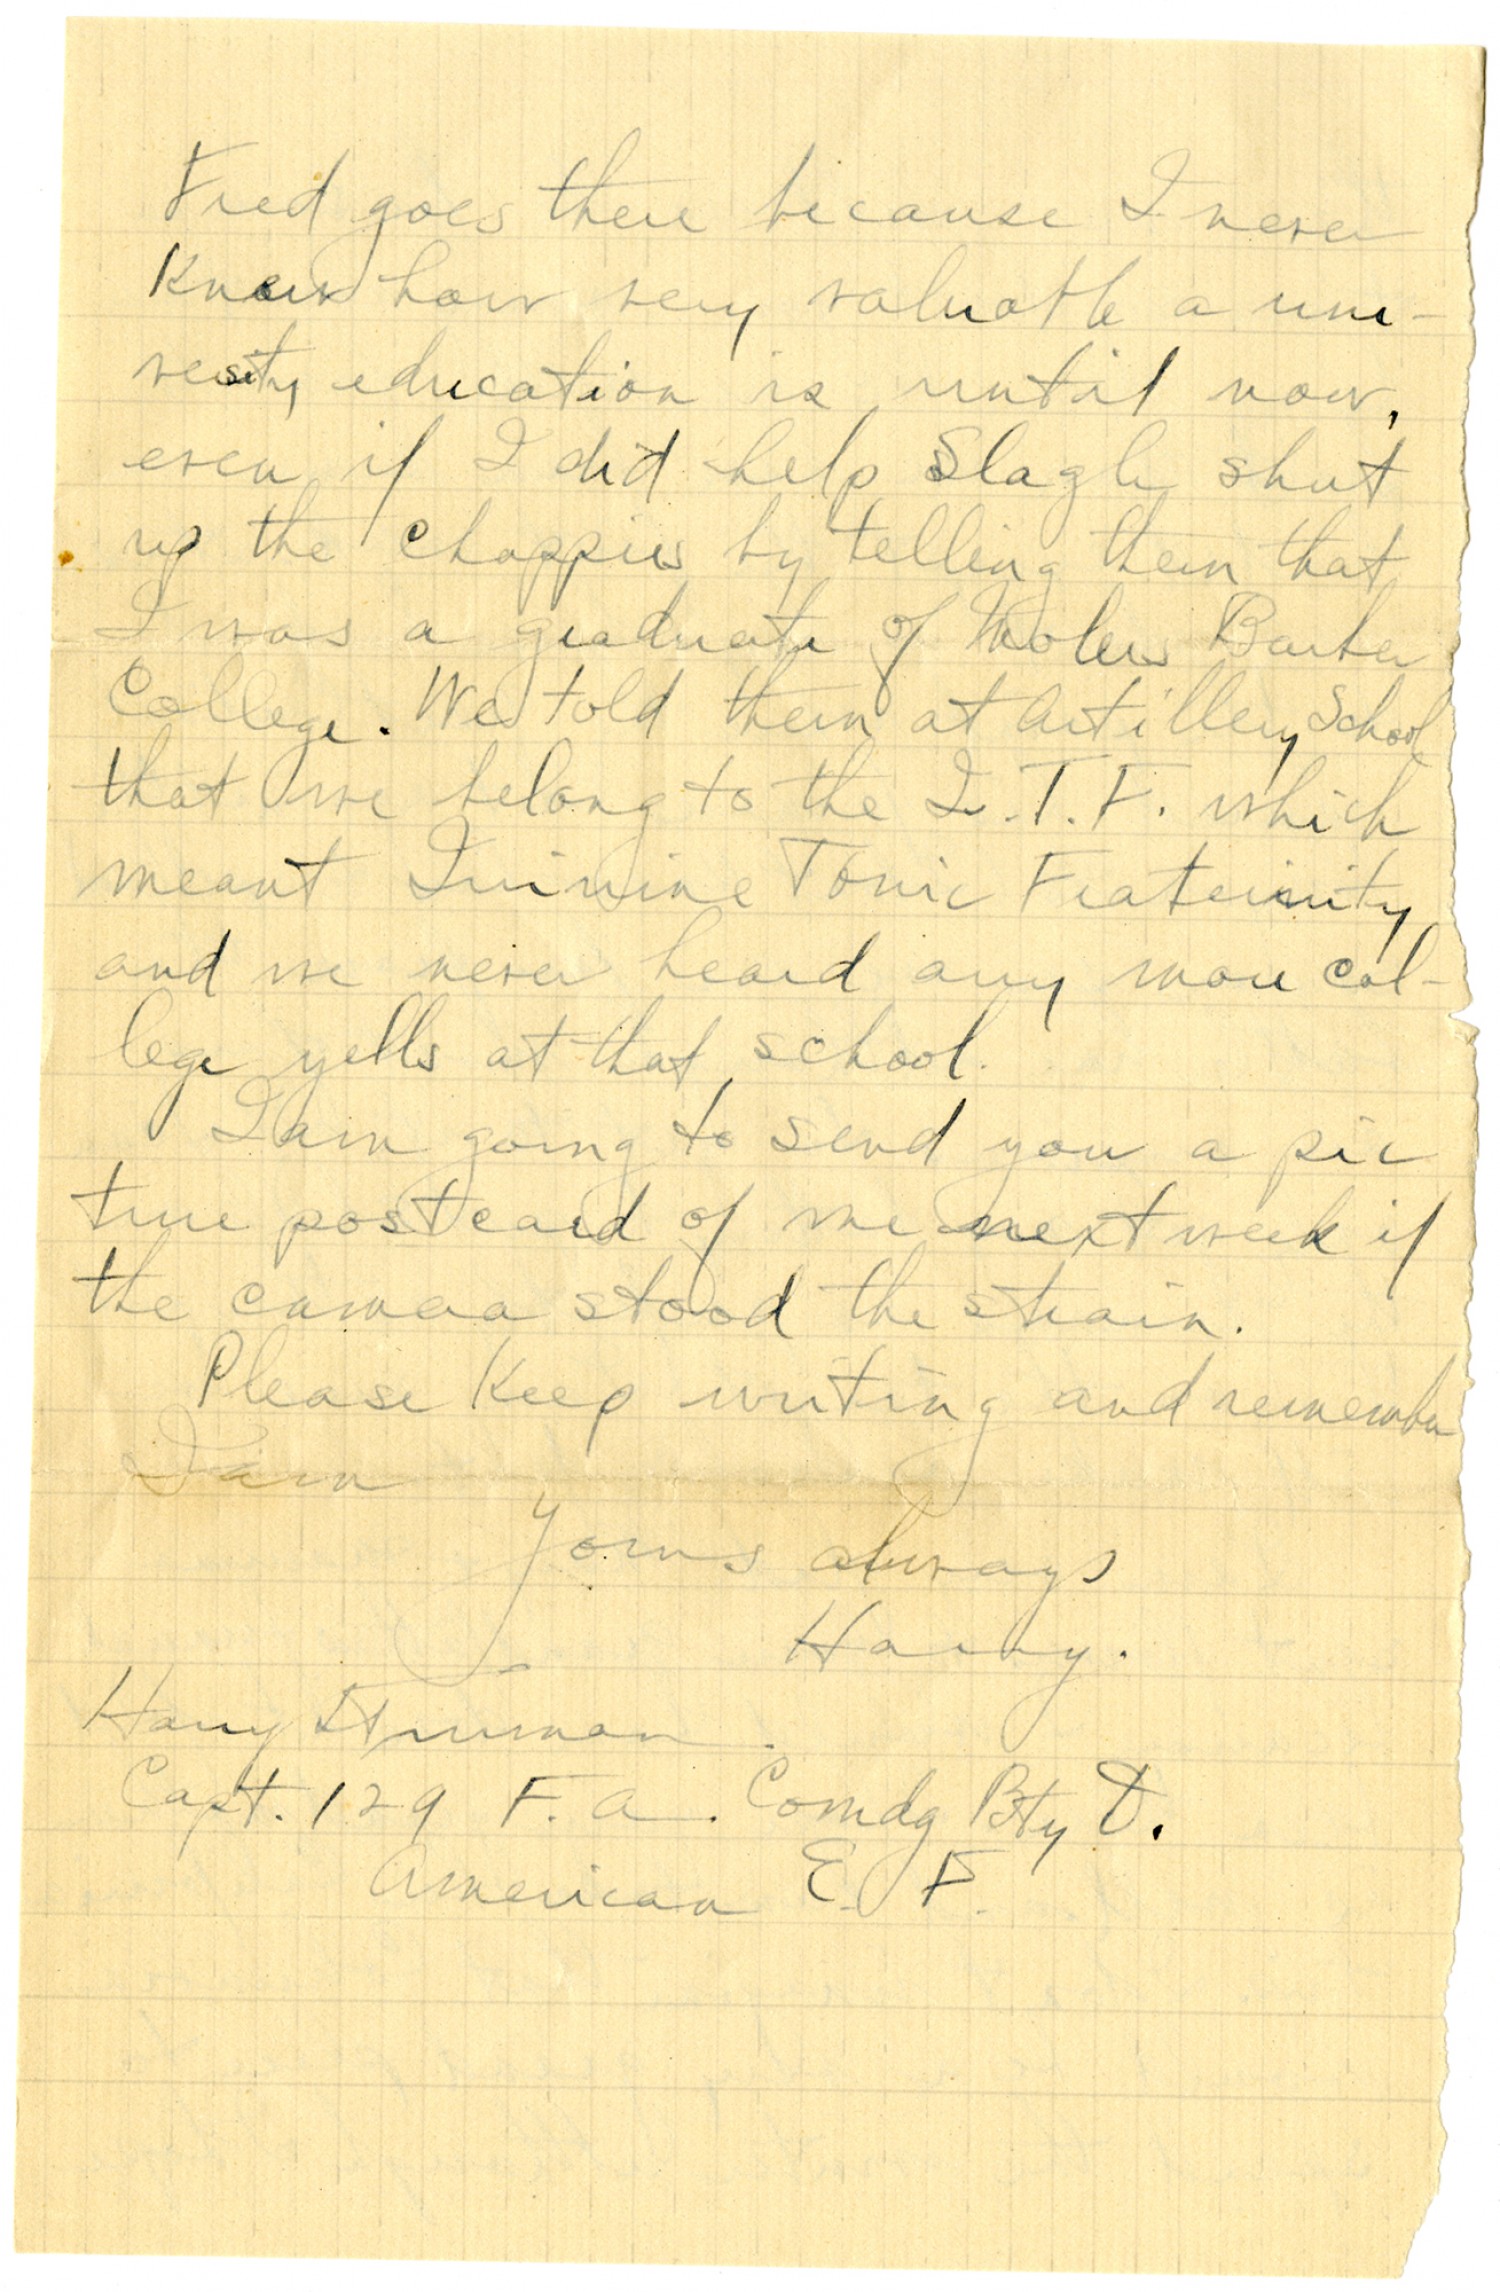 Fred goes there because I never
knew how very valuable a uni-
versity education is until now,
even if I did help Slagle shut
up the chappies by telling them that
I was a graduate of Molers Barber
College. We told them at Artillery School
that we belong to the Q.T.F. which
meant Quinine Tonic Fraternity
and we never heard any more col-
lege yells at that school.
I am going to send you a pic
ture postcard of me next week if
the camera stood the strain.
Please keep writing and remember
I am
Yours always
Harry.
Harry S Truman.
Capt. 129 F.A. Comdg Bty D.
American E. F.